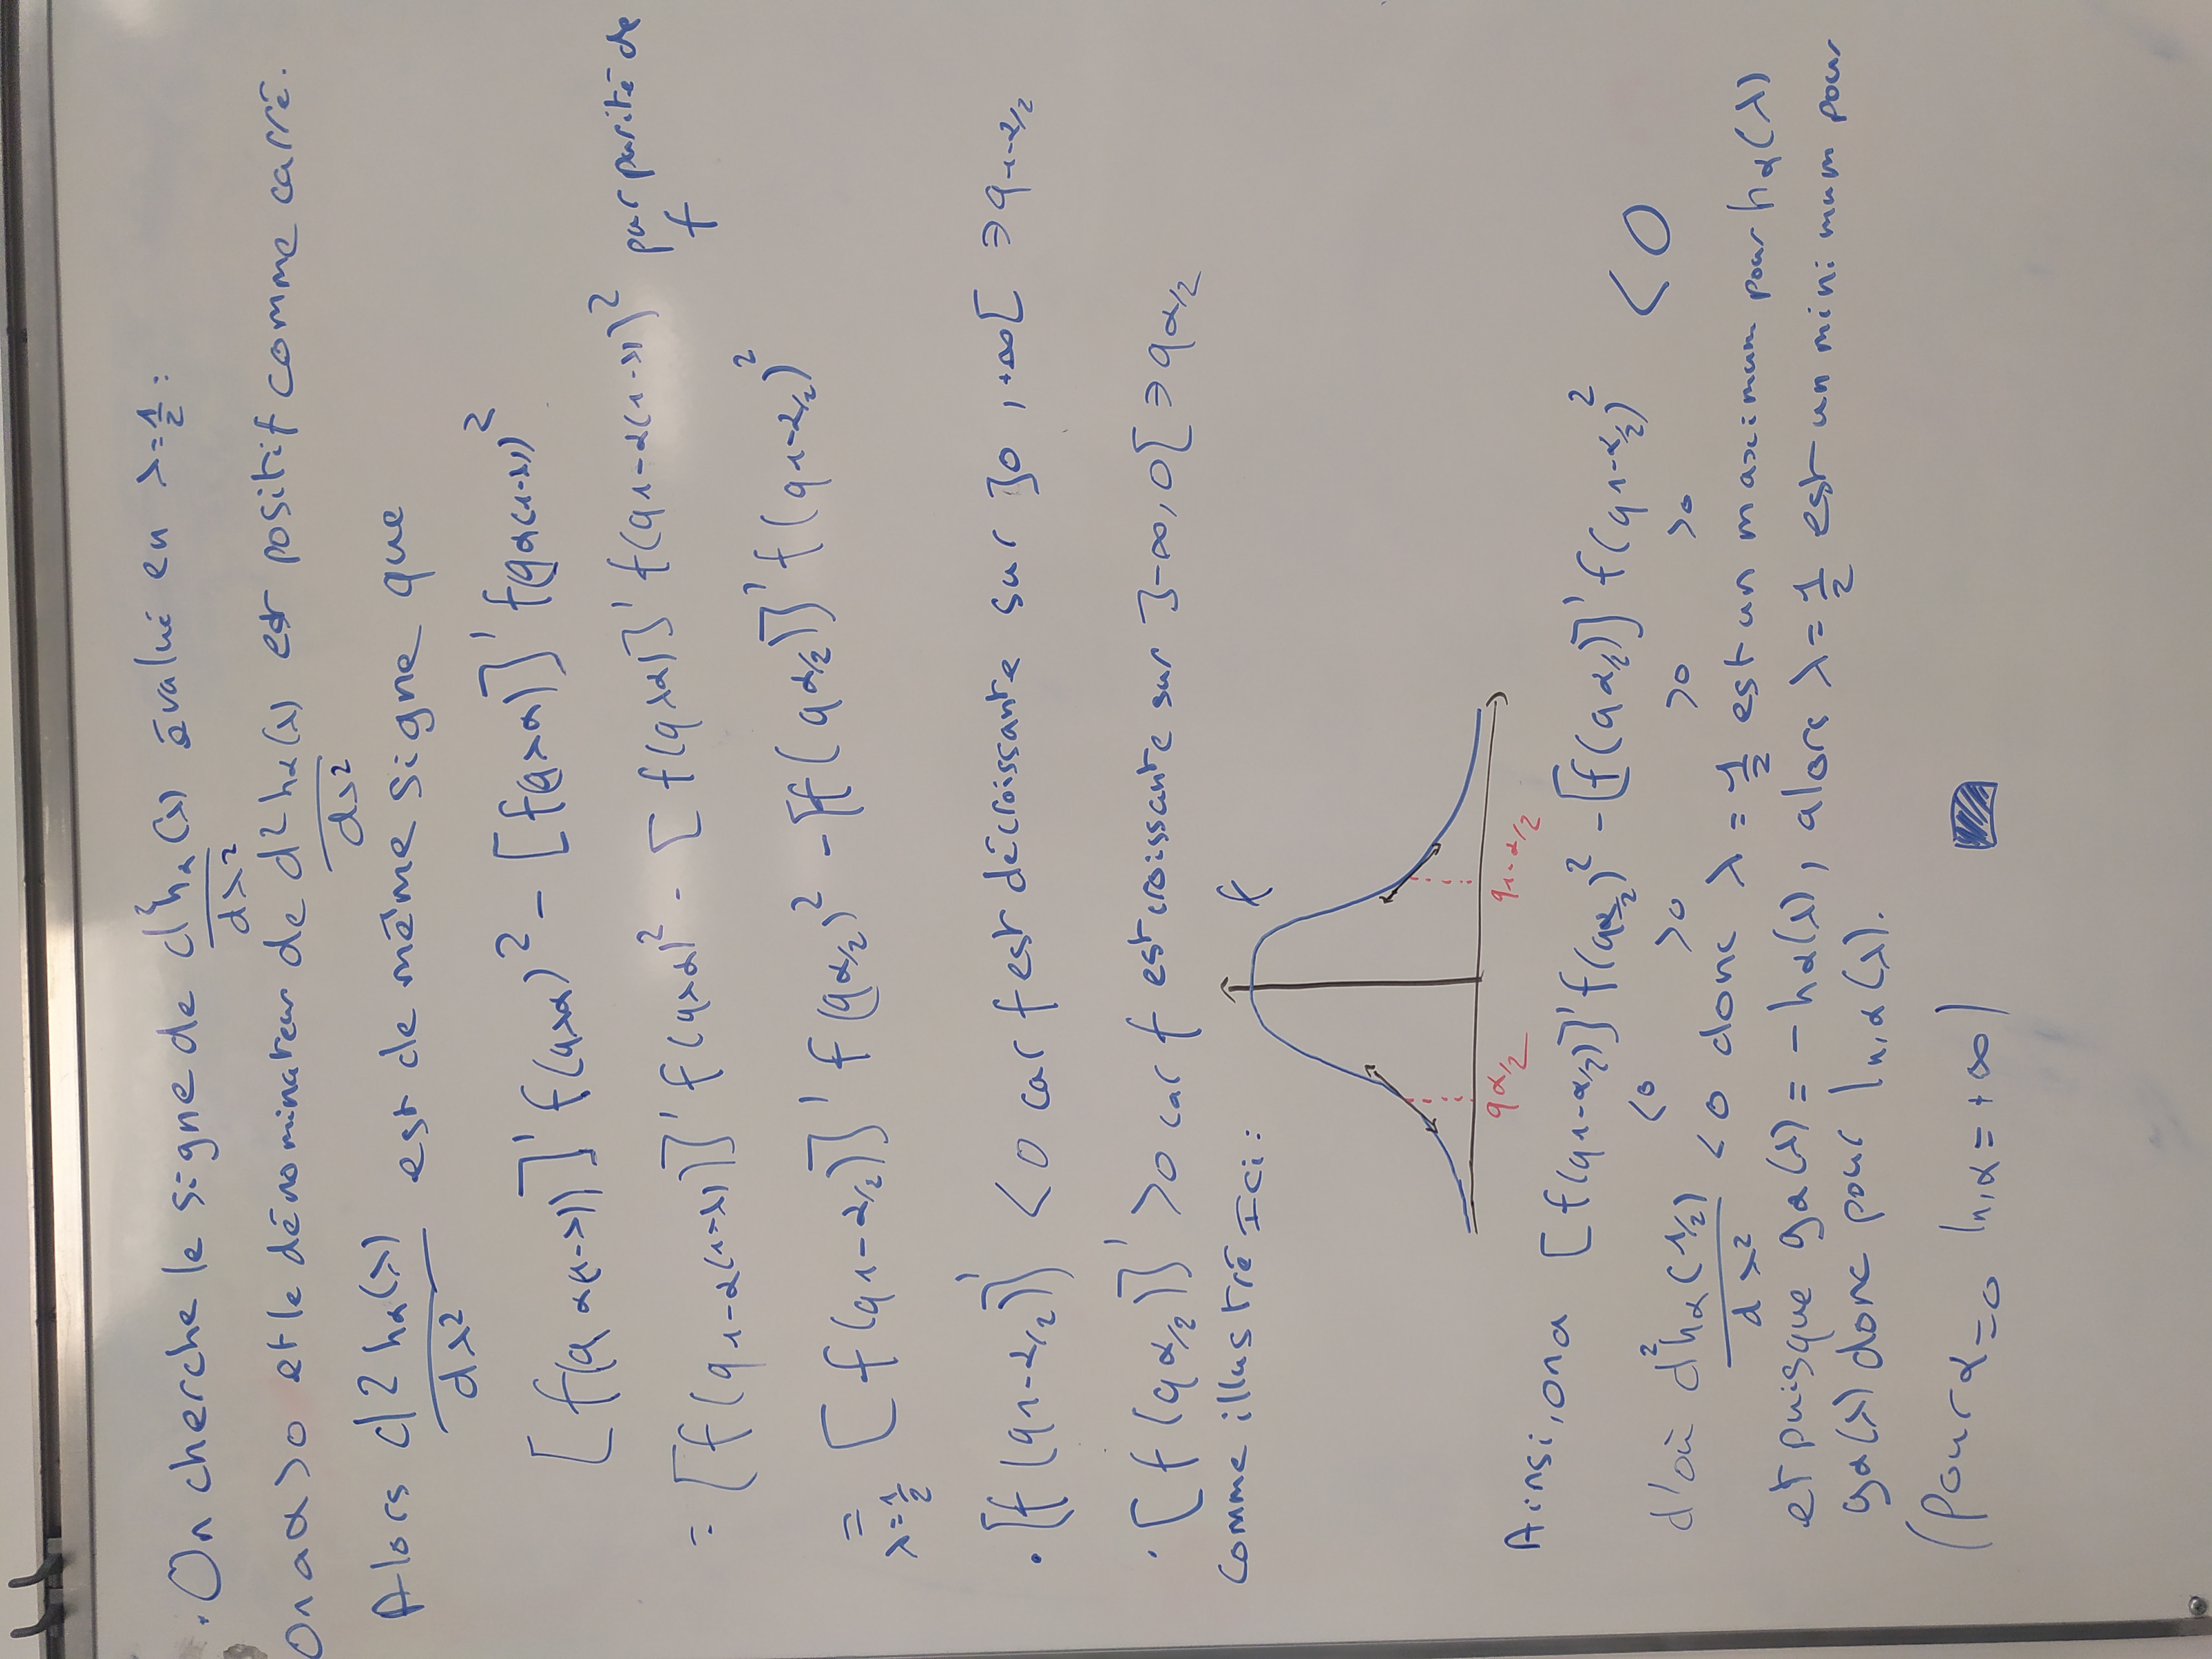 . On cherche le signe de d²hα(λ)/dλ² évalué en λ=1/2 :
On a α>0 et le dénominateur de d²hα(λ)/dλ² est positif comme carré.
Alors d²hα(λ)/dλ² est de même signe que
[f(qα(1-λ))]' f(qλα)² - [f(qλα)]' f(qα(1-λ))²
= [f(q1-α(1-λ))]' f(qλα)² - [f(qλα)]' f(q1-α(1-λ))² par parité de f
=λ=1/2 [f(q1-α/2)]' f(qα/2)² - [f(qα/2)]' f(q1-α/2)²
. [f(q1-α/2)]' <0 car f est décroissante sur ]0,+∞[ ∋ q1-α/2
. [f(qα/2)]' >0 car f est croissante sur ]-∞,0[ ∋ qα/2
comme illustré Ici :
f
qα/2 q1-α/2
Ainsi, on a [f(q1-α/2)]' f(qα/2)² - [f(qα/2)]' f(q1-α/2)² <0
<0 >0 >0 >0
d'où d²hα(1/2)/dλ² <0 donc λ=1/2 est un maximum pour hα(λ)
et puisque gα(λ) = -hα(λ), alors λ=1/2 est un minimum pour
gα(λ) donc pour ln,α(λ).
(pour α=0 ln,α=+∞)